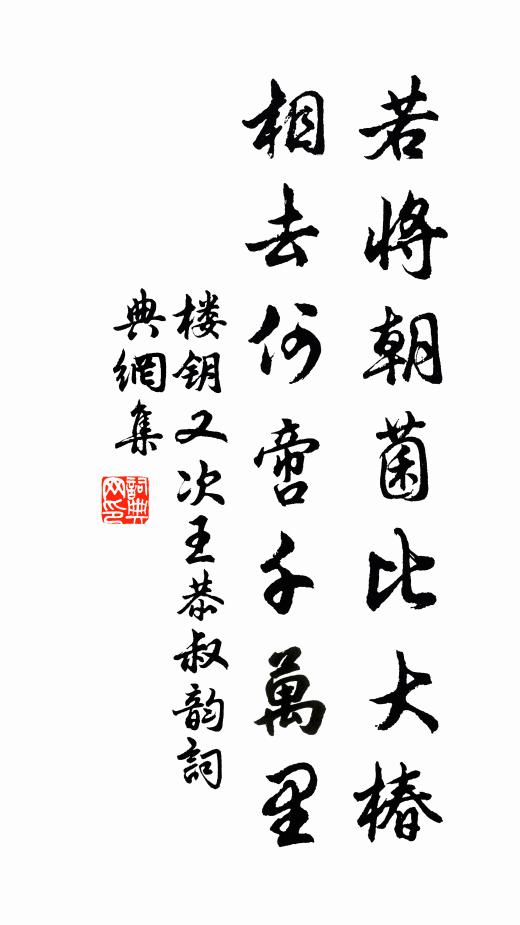 若將朝菌比大椿
相去何啻千萬里
楼钥又次王恭叔韵詞
典網集
詞典网印